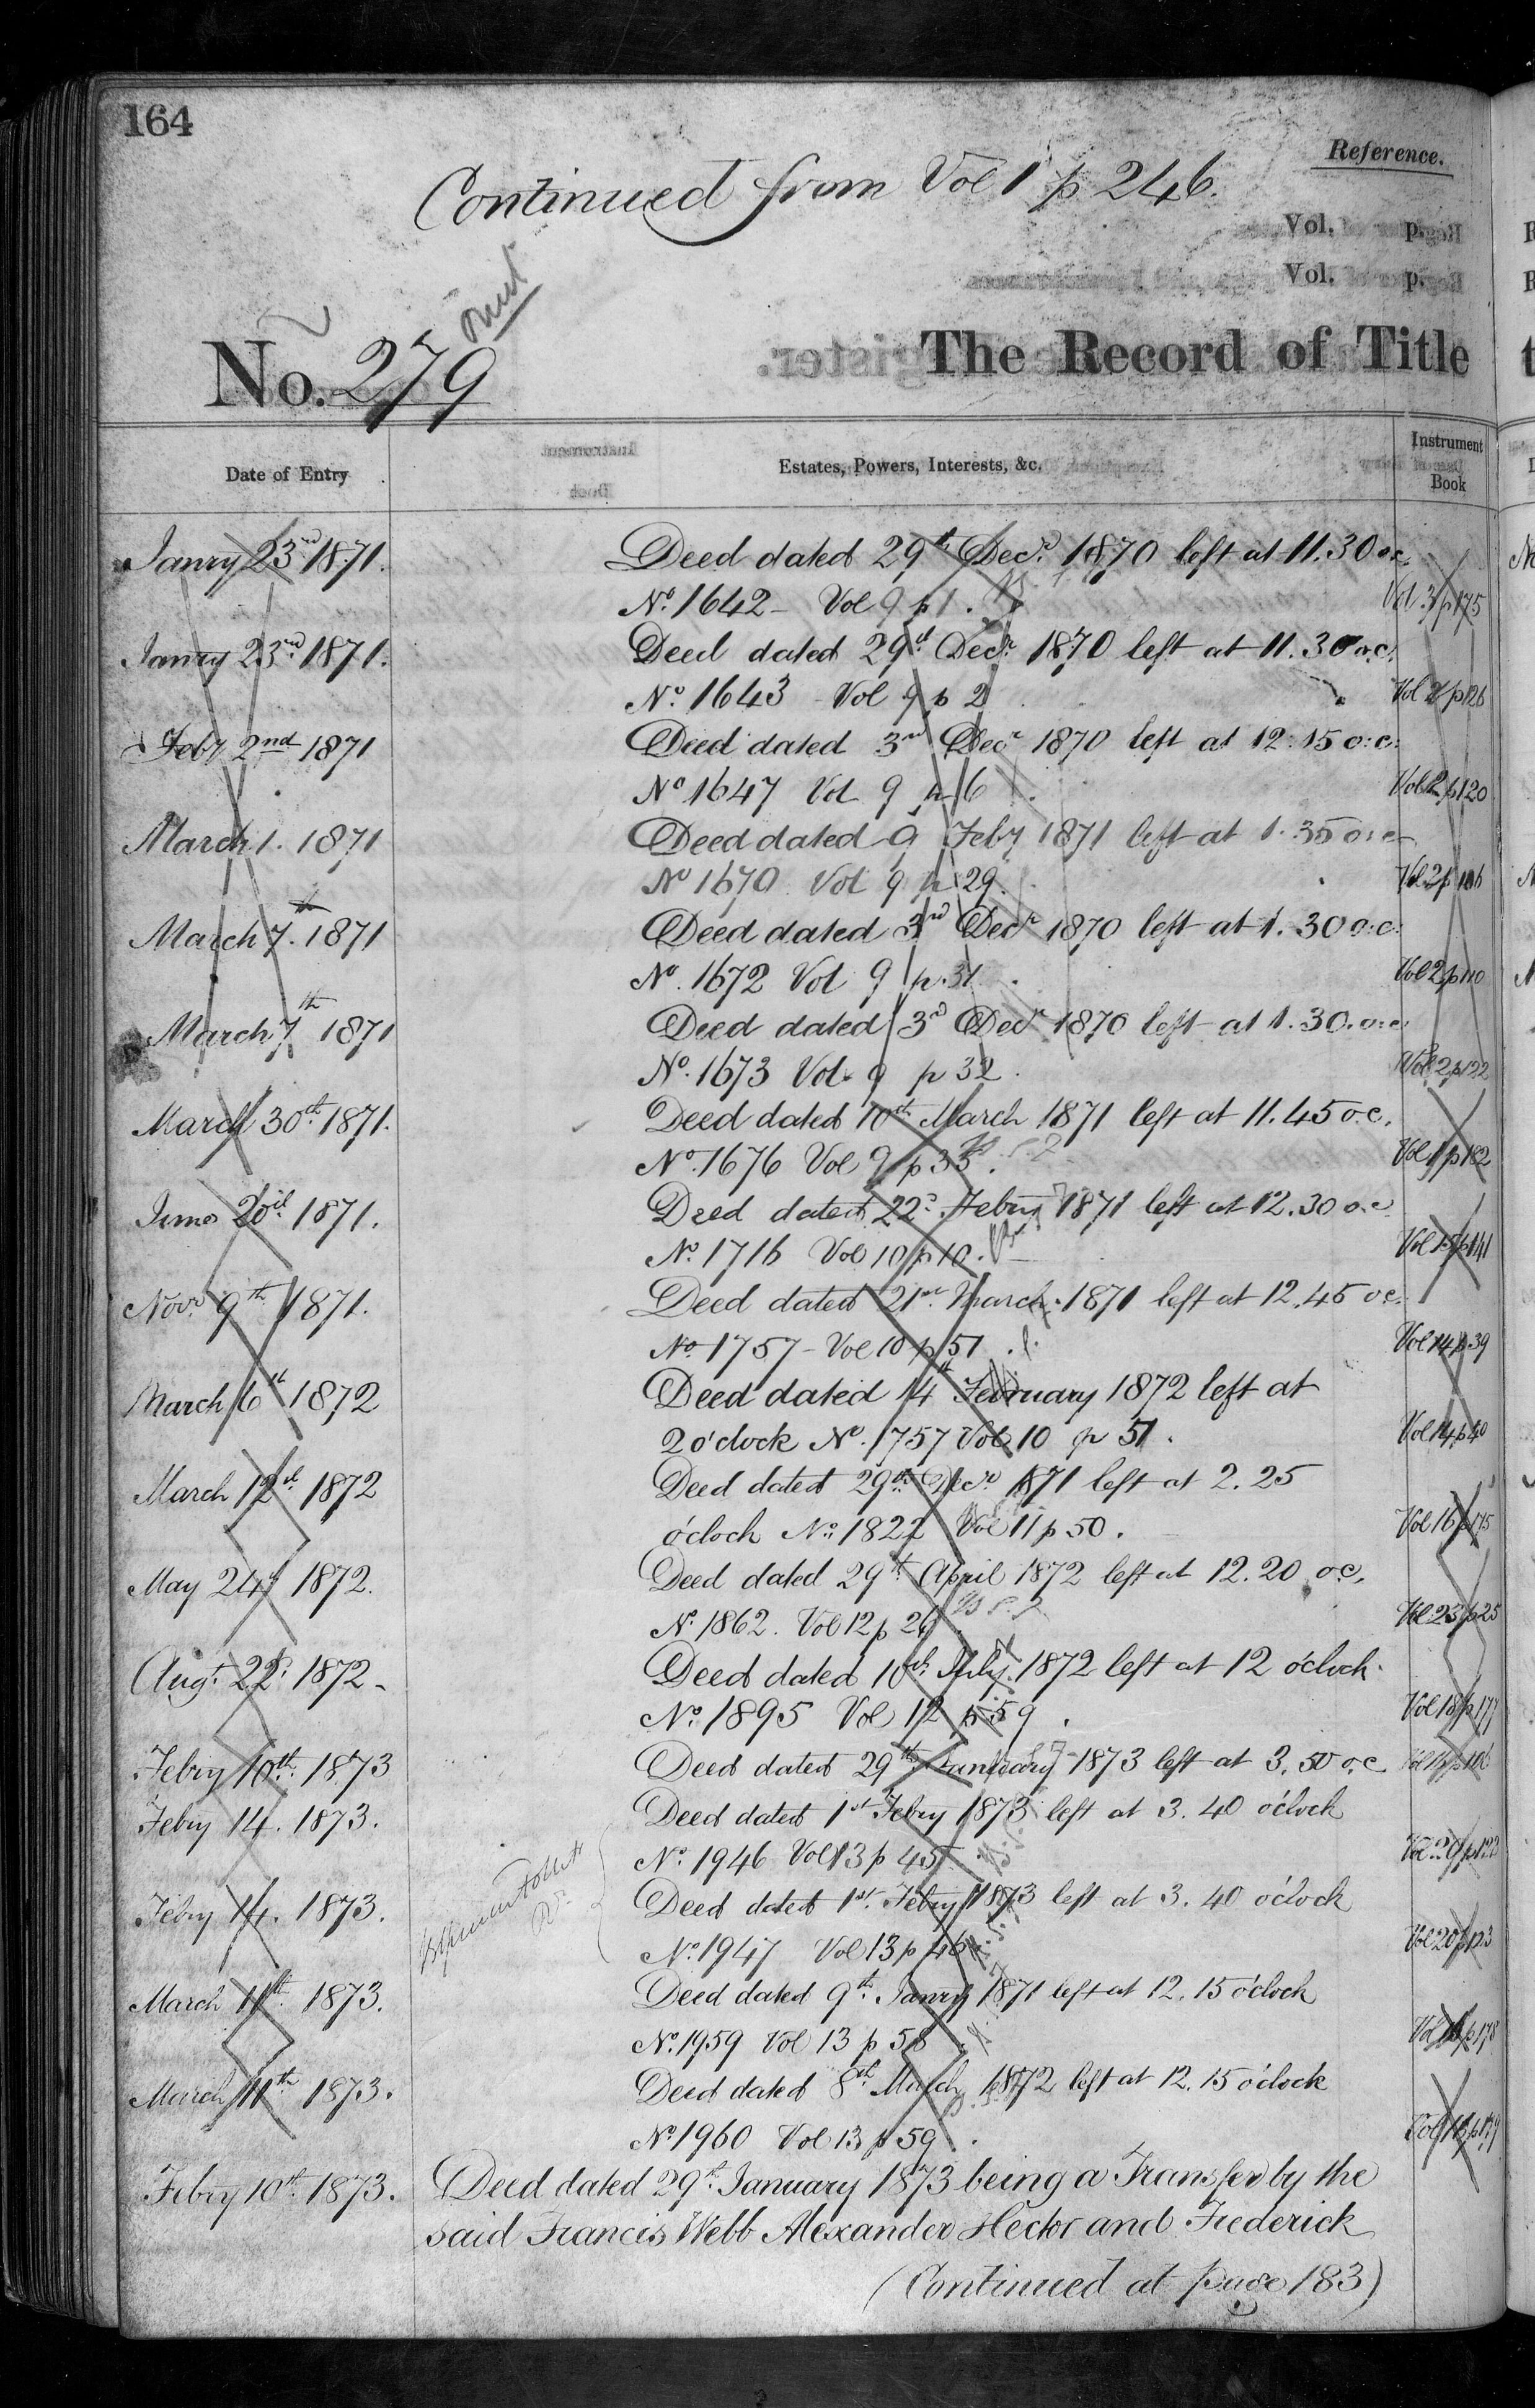 164
Reference.
Continued from Vol 1 p 246.
Vol. p.
Vol. p.
No. 279
The Record of Title
Date of Entry
Estates, Powers, Interests, &c.
Instrument
Book
Janry 23rd 1871. Deed dated 29th Decr 1870 left at 11.30 o.c.
No. 1642 - Vol 9 p 1. Vol 3 p 175
Janry 23rd 1871. Deed dated 29th Decr 1870 left at 11.30 o.c.
No. 1643 - Vol 9 p 2 Vol p 126
Feby 2nd 1871 Deed dated 3rd Decr 1870 left at 12.15 o.c.
No 1647 Vol 9 p 6 Vol 2 p 120
March 1. 1871 Deed dated 9 Feby 1871 left at 1.35 o.c.
No 1670 Vol 9 p 29. Vol 2 p 106
March 7th 1871 Deed dated 3rd Decr 1870 left at 1.30 o.c.
No. 1672 Vol 9 p. 31. Vol 2 p 110
March 7th 1871 Deed dated 3rd Decr 1870 left at 1.30. o.c.
No. 1673 Vol 9 p 32. Vol 2 p 122
March 30th 1871. Deed dated 10th March 1871 left at 11.45 o.c.
No. 1676 Vol 9 p 33. Vol 1 p 182
June 20th 1871. Deed dated 22d Febry 1871 left at 12.30 o.c
No. 1716 Vol 10 p 10. Vol 15 p 141
Novr 9th 1871. Deed dated 21st March 1871 left at 12.45 o.c.
No. 1757 - Vol 10 p 51. Vol 14 p. 39
March 6th 1872 Deed dated 14th February 1872 left at
2 o'clock No. 1757 Vol 10 p 51. Vol 14 p 40
March 12th 1872 Deed dated 29th Decr 1871 left at 2.25
o'clock No. 1822 Vol 11 p 50. Vol 16 p 175
May 24 1872. Deed dated 29th April 1872 left at 12.20 o.c.
No. 1862. Vol 12 p 26 Vol 23 p 25
Augt 22d 1872 - Deed dated 10th July 1872 left at 12 o'clock.
No. 1895 Vol 12 p 59. Vol 18 p 177
Febry 10th 1873 Deed dated 29th January 1873 left at 3.50 o.c.
Febry 14. 1873. Deed dated 1st Febry 1873 left at 3.40 o'clock
No. 1946 Vol 13 p 45 Vol 20 p 122
Febry 14. 1873. Deed dated 1st Febry 1873 left at 3.40 o'clock
No. 1947 Vol 13 p 46 Vol 20 p 123
March 11th 1873. Deed dated 9th Janry 1871 left at 12.15 o'clock
No. 1959 Vol 13 p 58 Vol p 178
March 11th 1873. Deed dated 8th March 1872 left at 12.15 o'clock
No. 1960 Vol 13 p 59.
Febry 10th 1873. Deed dated 29th January 1873 being a Transfer by the
said Francis Webb Alexander Hector and Frederick
(Continued at page 183)